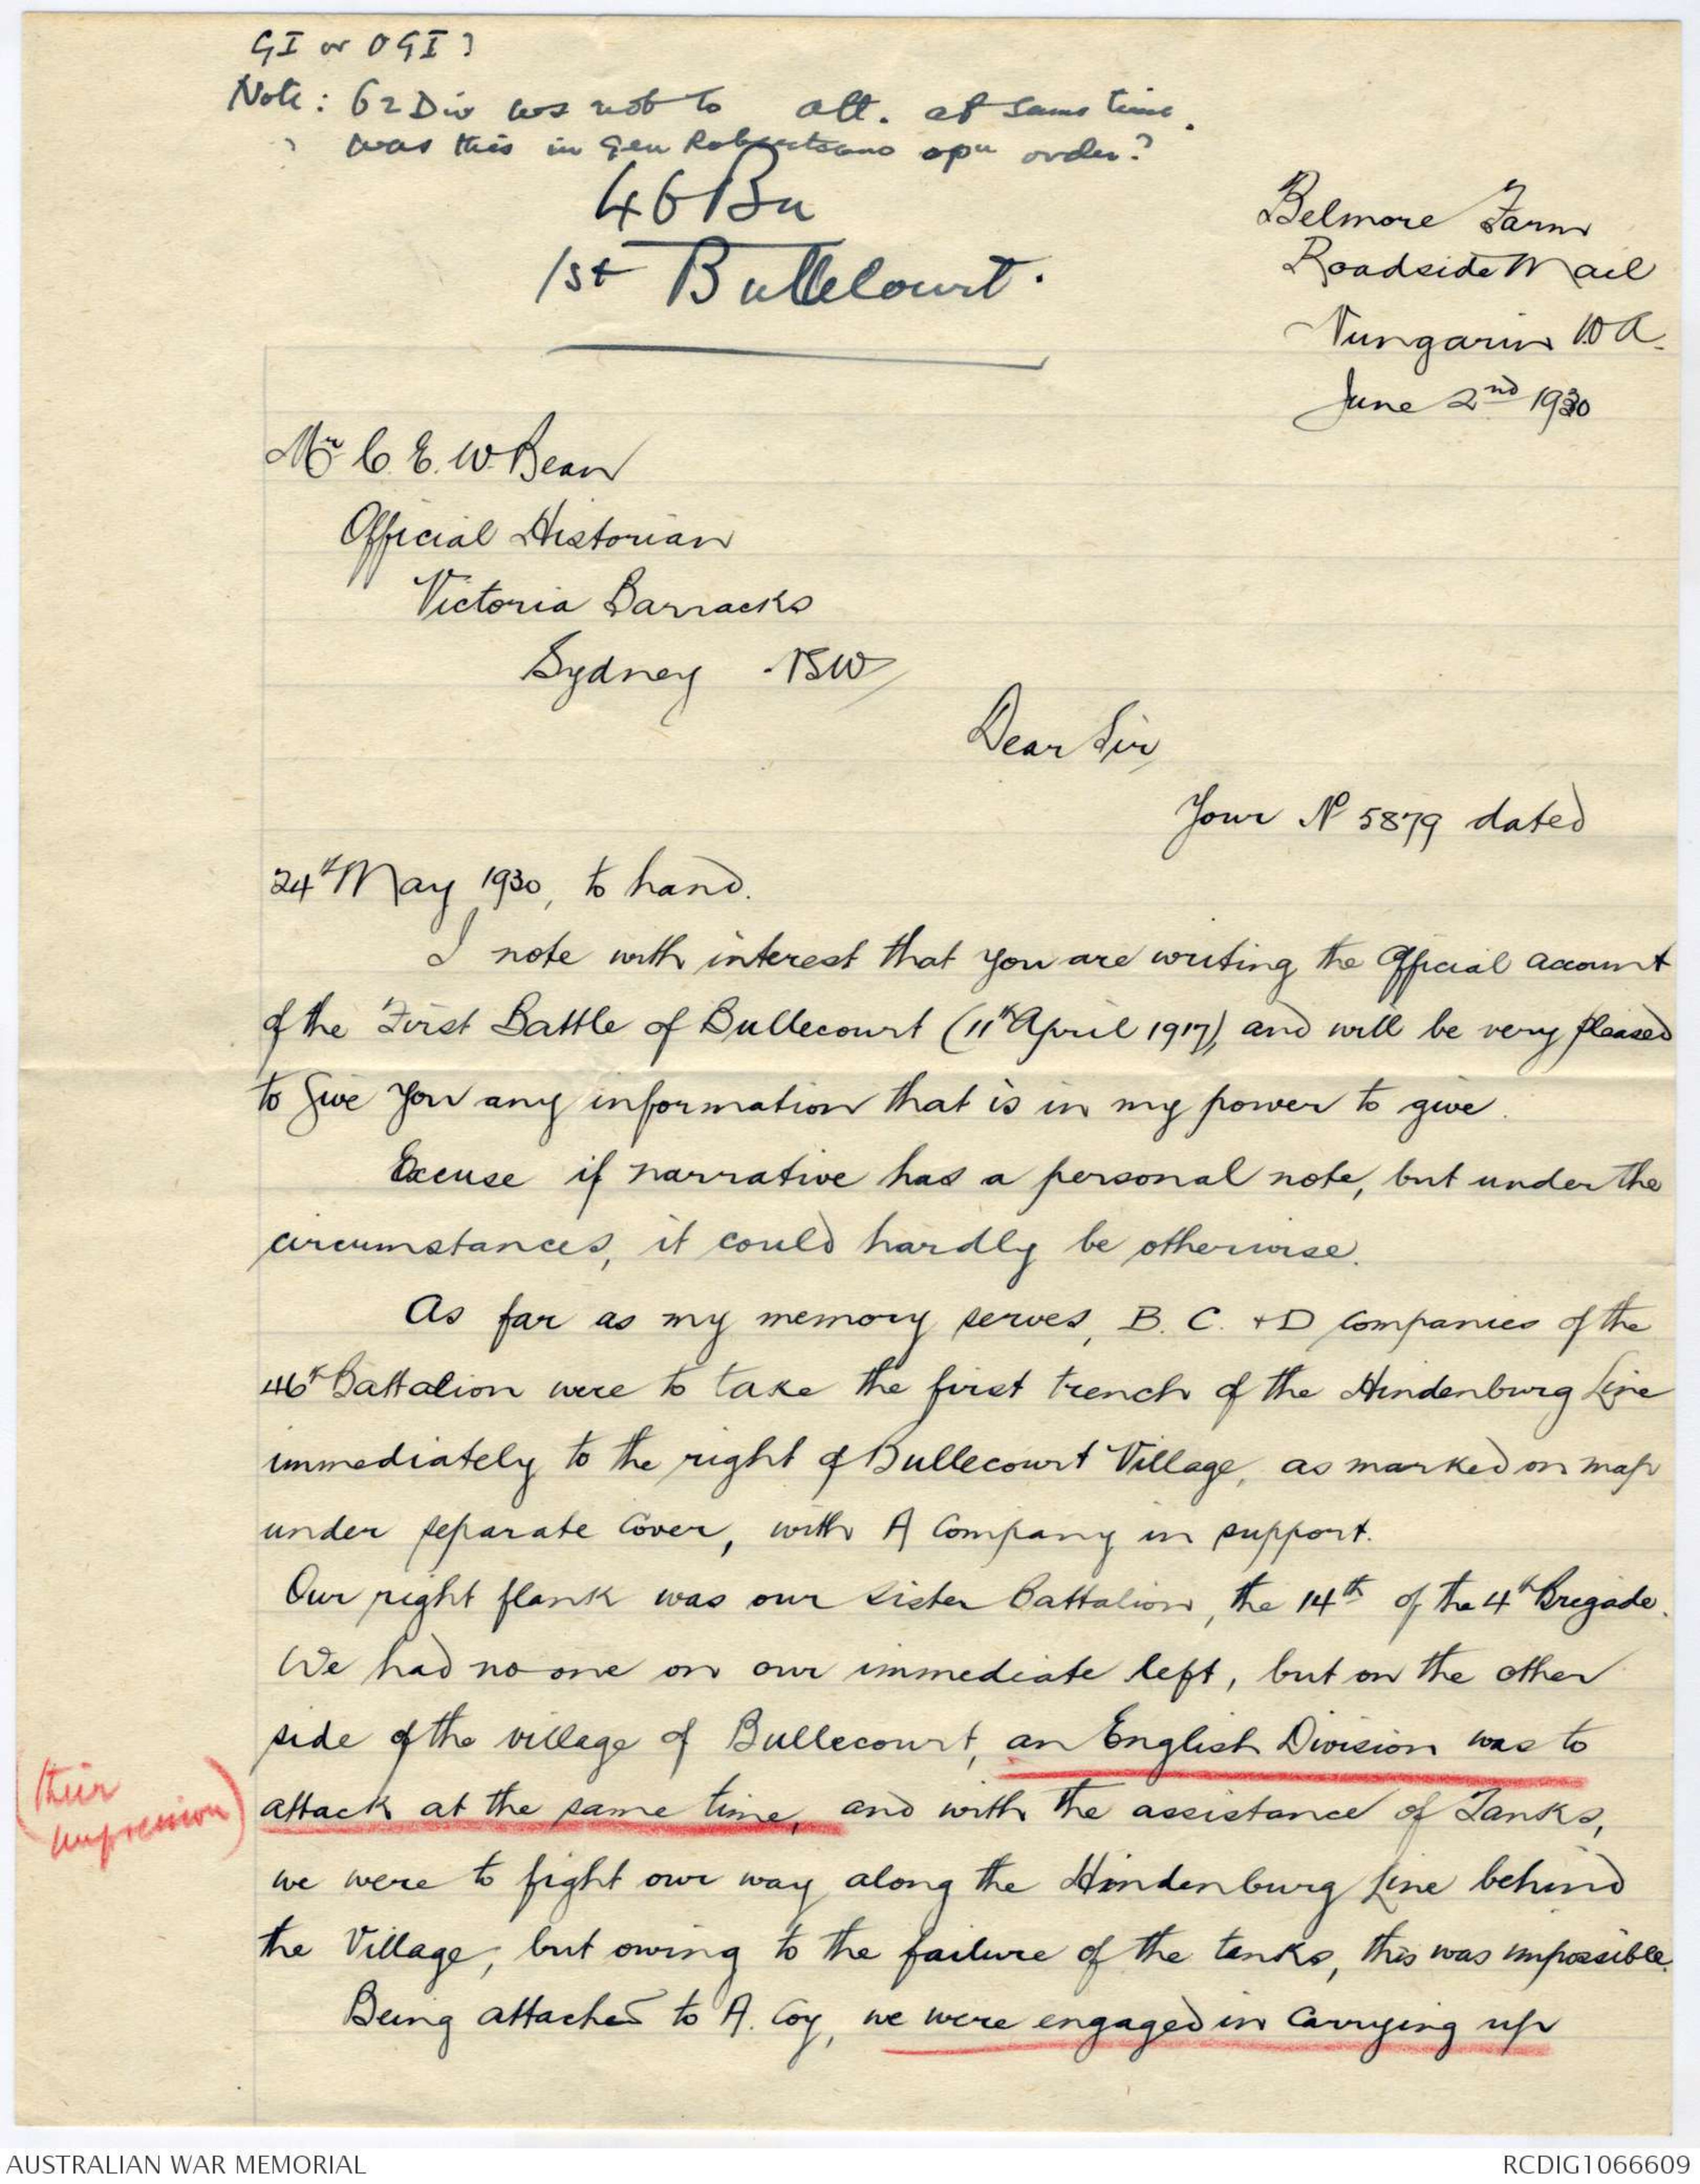 GI or OGI?
Note: 62 Div was not to att. at same time.
? was this in Gen Robertsons opn order?
46 Bn
1st Bullecourt.
Belmore Farm
Roadside Mail
Nungarin W A.
June 2nd 1930
Mr C. E. W. Bean
Official Historian
Victoria Barracks
Sydney NSW
Dear Sir,
Your No 5879 dated
24th May 1930, to hand.
I note with interest that you are writing the Official account
of the First Battle of Bullecourt (11th April 1917), and will be very pleased
to give you any information that is in my power to give.
Excuse if narrative has a personal note, but under the
circumstances, it could hardly be otherwise.
As far as my memory serves, B. C. + D Companies of the
46th Battalion were to take the first trench of the Hindenburg Line
immediately to the right of Bullecourt Village, as marked on map
under separate cover, with A Company in support.
Our right flank was our sister Battalion, the 14th of the 4th Brigade.
We had no one on our immediate left, but on the other
side of the village of Bullecourt, an English Division was to
(their
impression)
attack at the same time, and with the assistance of Tanks,
we were to fight our way along the Hindenburg Line behind
the Village, but owing to the failure of the tanks, this was impossible.
Being attached to A. Coy, we were engaged in carrying up
AUSTRALIAN WAR MEMORIAL
RCDIG1066609